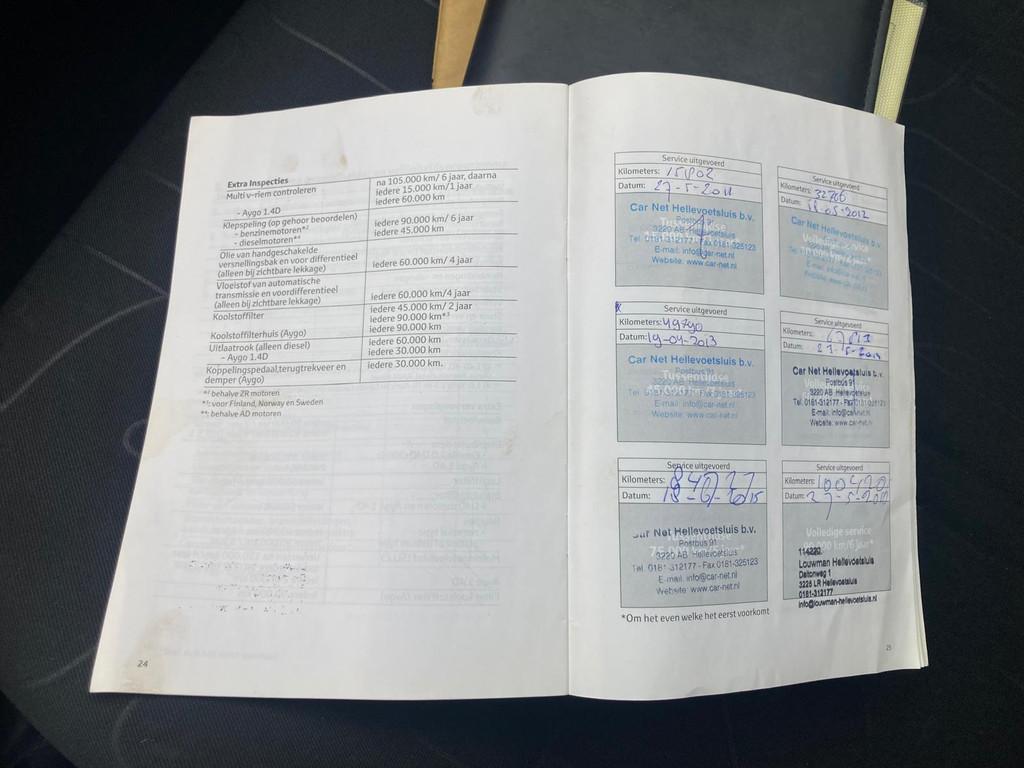 Extra Inspecties
Multi v-riem controleren
na 105.000 km/ 6 jaar, daarna
iedere 15.000 km/1 jaar
- Aygo 1.4D
iedere 60.000 km
Klepspeling (op gehoor beoordelen)
- benzinemotoren*²
iedere 90.000 km/ 6 jaar
- dieselmotoren*⁴
iedere 45.000 km
Olie van handgeschakelde
versnellingsbak en voor differentieel
(alleen bij zichtbare lekkage)
iedere 60.000 km/4 jaar
Vloeistof van automatische
transmissie en voordifferentieel
(alleen bij zichtbare lekkage)
iedere 60.000 km/4 jaar
Koolstoffilter
iedere 45.000 km/ 2 jaar
iedere 90.000 km*³
Koolstoffilterhuis (Aygo)
iedere 90.000 km
Uitlaatrook (alleen diesel)
iedere 60.000 km
- Aygo 1.4D
iedere 30.000 km
Koppelingspedaal,terugtrekveer en
demper (Aygo)
iedere 30.000 km.
*² behalve ZR motoren
*³: voor Finland, Norway en Sweden
*⁴: behalve AD motoren
24
Service uitgevoerd
Kilometers: 15802
Datum: 27-5-2011
Car Net Hellevoetsluis b.v.
Postbus 91
3220 AB Hellevoetsluis
Tel. 0181-312177 - Fax 0181-325123
E-mail: info@car-net.nl
Website: www.car-net.nl
Service uitgevoerd
Kilometers: 32766
Datum: 18-05-2012
Car Net Hellevoetsluis b.v.
Service uitgevoerd
Kilometers: 49790
Datum: 19-04-2013
Car Net Hellevoetsluis b.v.
Postbus 91
Tussentijdse
Tel. 0181-312177 - Fax 0181-325123
E-mail: info@car-net.nl
Website: www.car-net.nl
Service uitgevoerd
Kilometers:
Datum:
Car Net Hellevoetsluis b.v.
Postbus 91
3220 AB Hellevoetsluis
Tel. 0181-312177 - Fax 0181-325123
E-mail: info@car-net.nl
Website: www.car-net.nl
Service uitgevoerd
Kilometers:
Datum: 18-6-2015
Car Net Hellevoetsluis b.v.
Postbus 91
3220 AB Hellevoetsluis
Tel. 0181-312177 - Fax 0181-325123
E-mail: info@car-net.nl
Website: www.car-net.nl
Service uitgevoerd
Kilometers: 100420
Datum:
Volledige service
90.000 km/6 jaar*
114220
Louwman Hellevoetsluis
Daltonweg 1
3225 LR Hellevoetsluis
0181-312177
info@louwman-hellevoetsluis.nl
*Om het even welke het eerst voorkomt
25